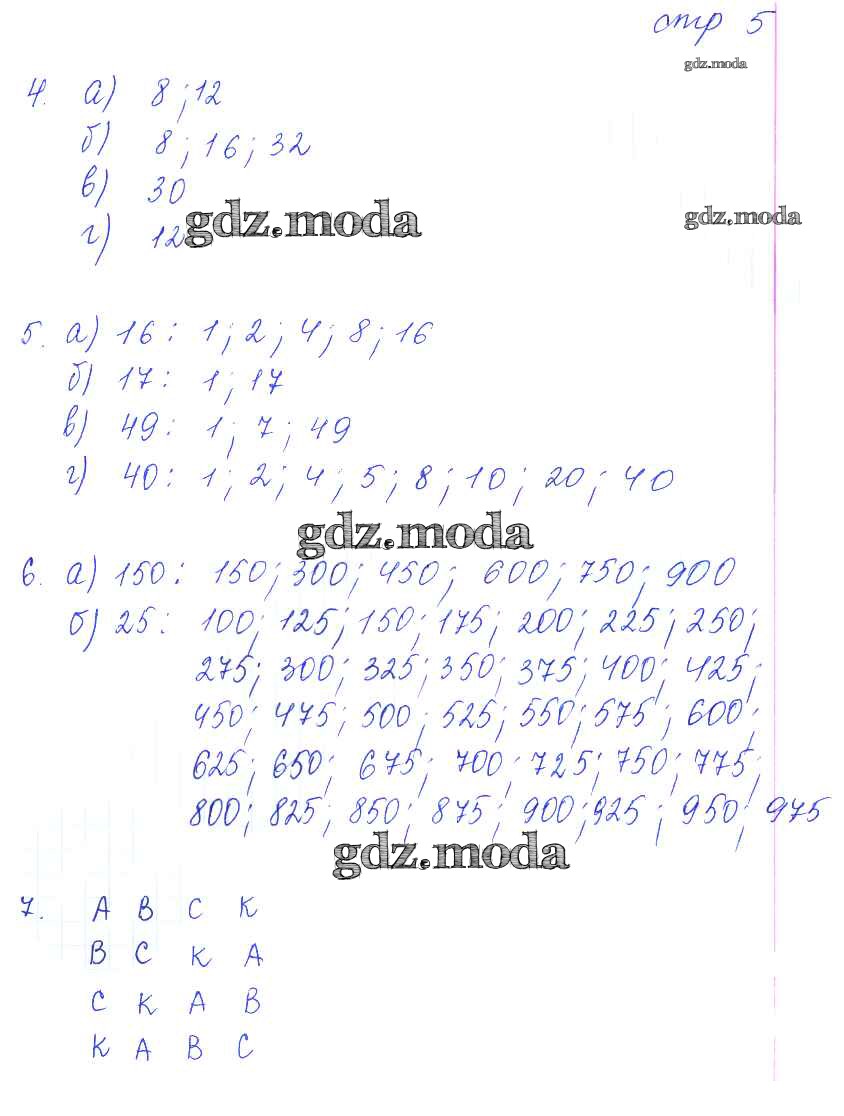 стр 5
gdz.moda
4. а) 8 ; 12
б) 8 ; 16 ; 32
в) 30
gdz.moda
gdz.moda
г) 12
5. а) 16 : 1 ; 2 ; 4 ; 8 ; 16
б) 17 : 1 ; 17
в) 49 : 1 ; 7 ; 49
г) 40 : 1 ; 2 ; 4 ; 5 ; 8 ; 10 ; 20 ; 40
gdz.moda
6. а) 150 : 150 ; 300 ; 450 ; 600 ; 750 ; 900
б) 25 : 100 ; 125 ; 150 ; 175 ; 200 ; 225 ; 250 ;
275 ; 300 ; 325 ; 350 ; 375 ; 400 ; 425 ;
450 ; 475 ; 500 ; 525 ; 550 ; 575 ; 600 ;
625 ; 650 ; 675 ; 700 ; 725 ; 750 ; 775 ;
800 ; 825 ; 850 ; 875 ; 900 ; 925 ; 950 ; 975
gdz.moda
7. А В С К
В С К А
С К А В
К А В С